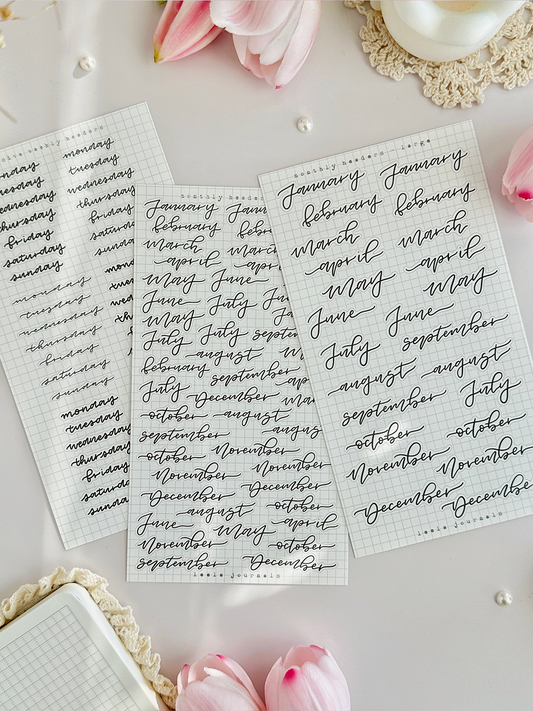 headers
monday
tuesday
wednesday
thursday
friday
saturday
sunday
monday
tuesday
wednesday
thursday
friday
saturday
sunday
monday
tuesday
wednesday
thursday
friday
saturday
sunday
monday
tuesday
wednesday
thursday
friday
monthly headers
January
february
march march
april
May June
June July
May July
July July september
august
february september
July December
october august
september august
october November
November November
December December
august october
June May april
November october
september December
leele journals
monthly headers - large
January January
february february
march march
april april
May May
June June
July september
august august
september July
october october
November November
December December
leele journals